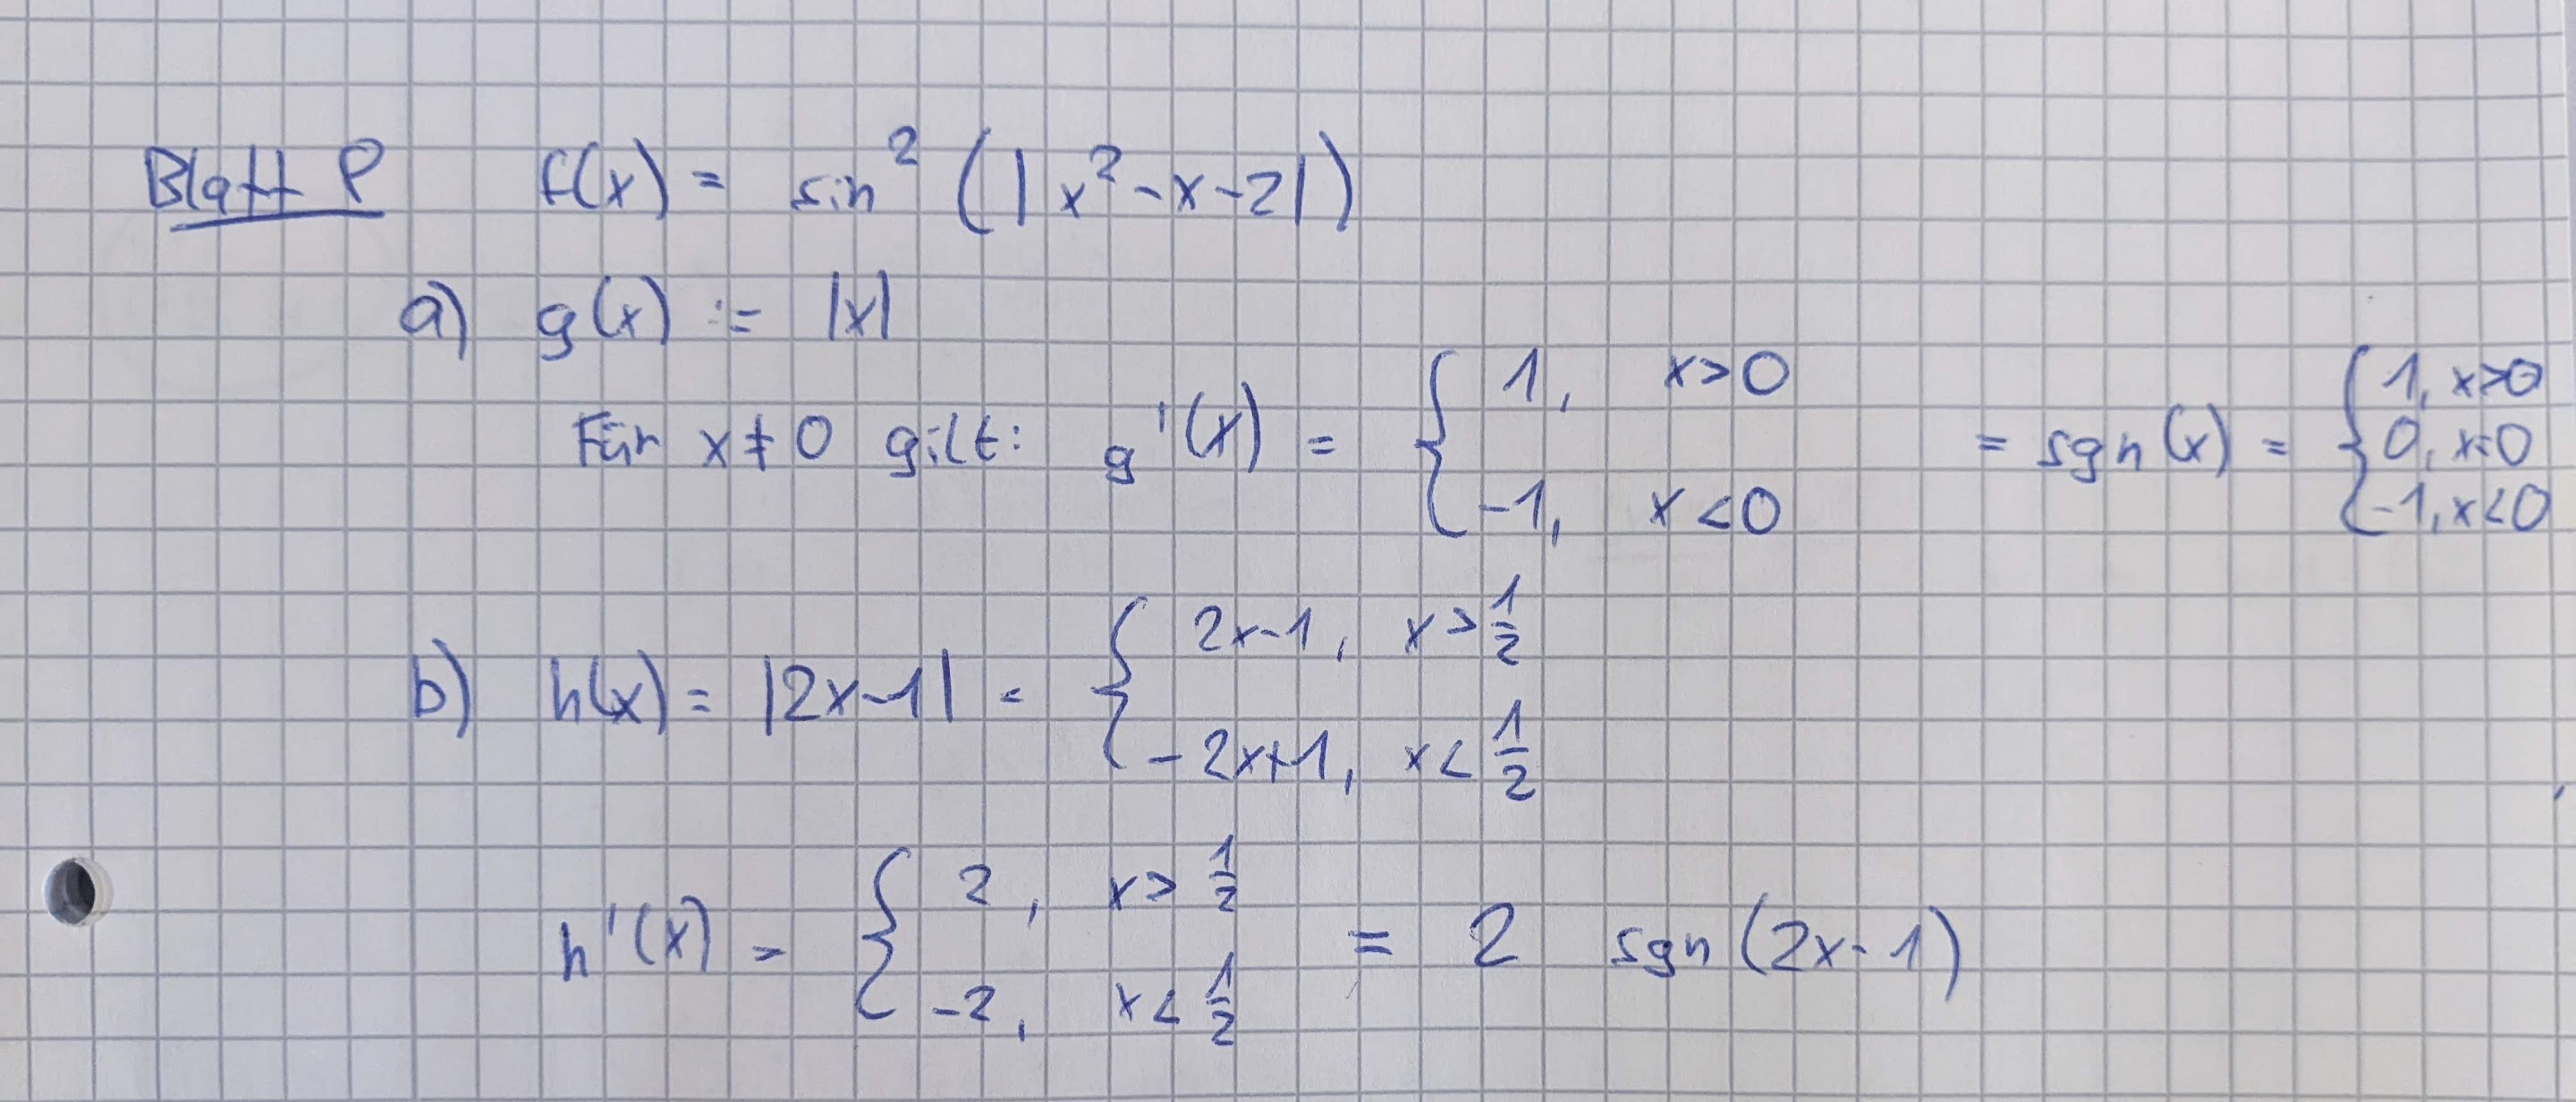 Blatt P f(x) = sin² (|x²-x-2|)
a) g(x) := |x|
Für x ≠ 0 gilt: g'(x) = { 1, x>0 ; -1, x<0 = sgn(x) = { 1, x>0 ; 0, x=0 ; -1, x<0
b) h(x) = |2x-1| = { 2x-1, x > 1/2 ; -2x+1, x < 1/2
h'(x) = { 2, x > 1/2 ; -2, x < 1/2 = 2 sgn(2x-1)